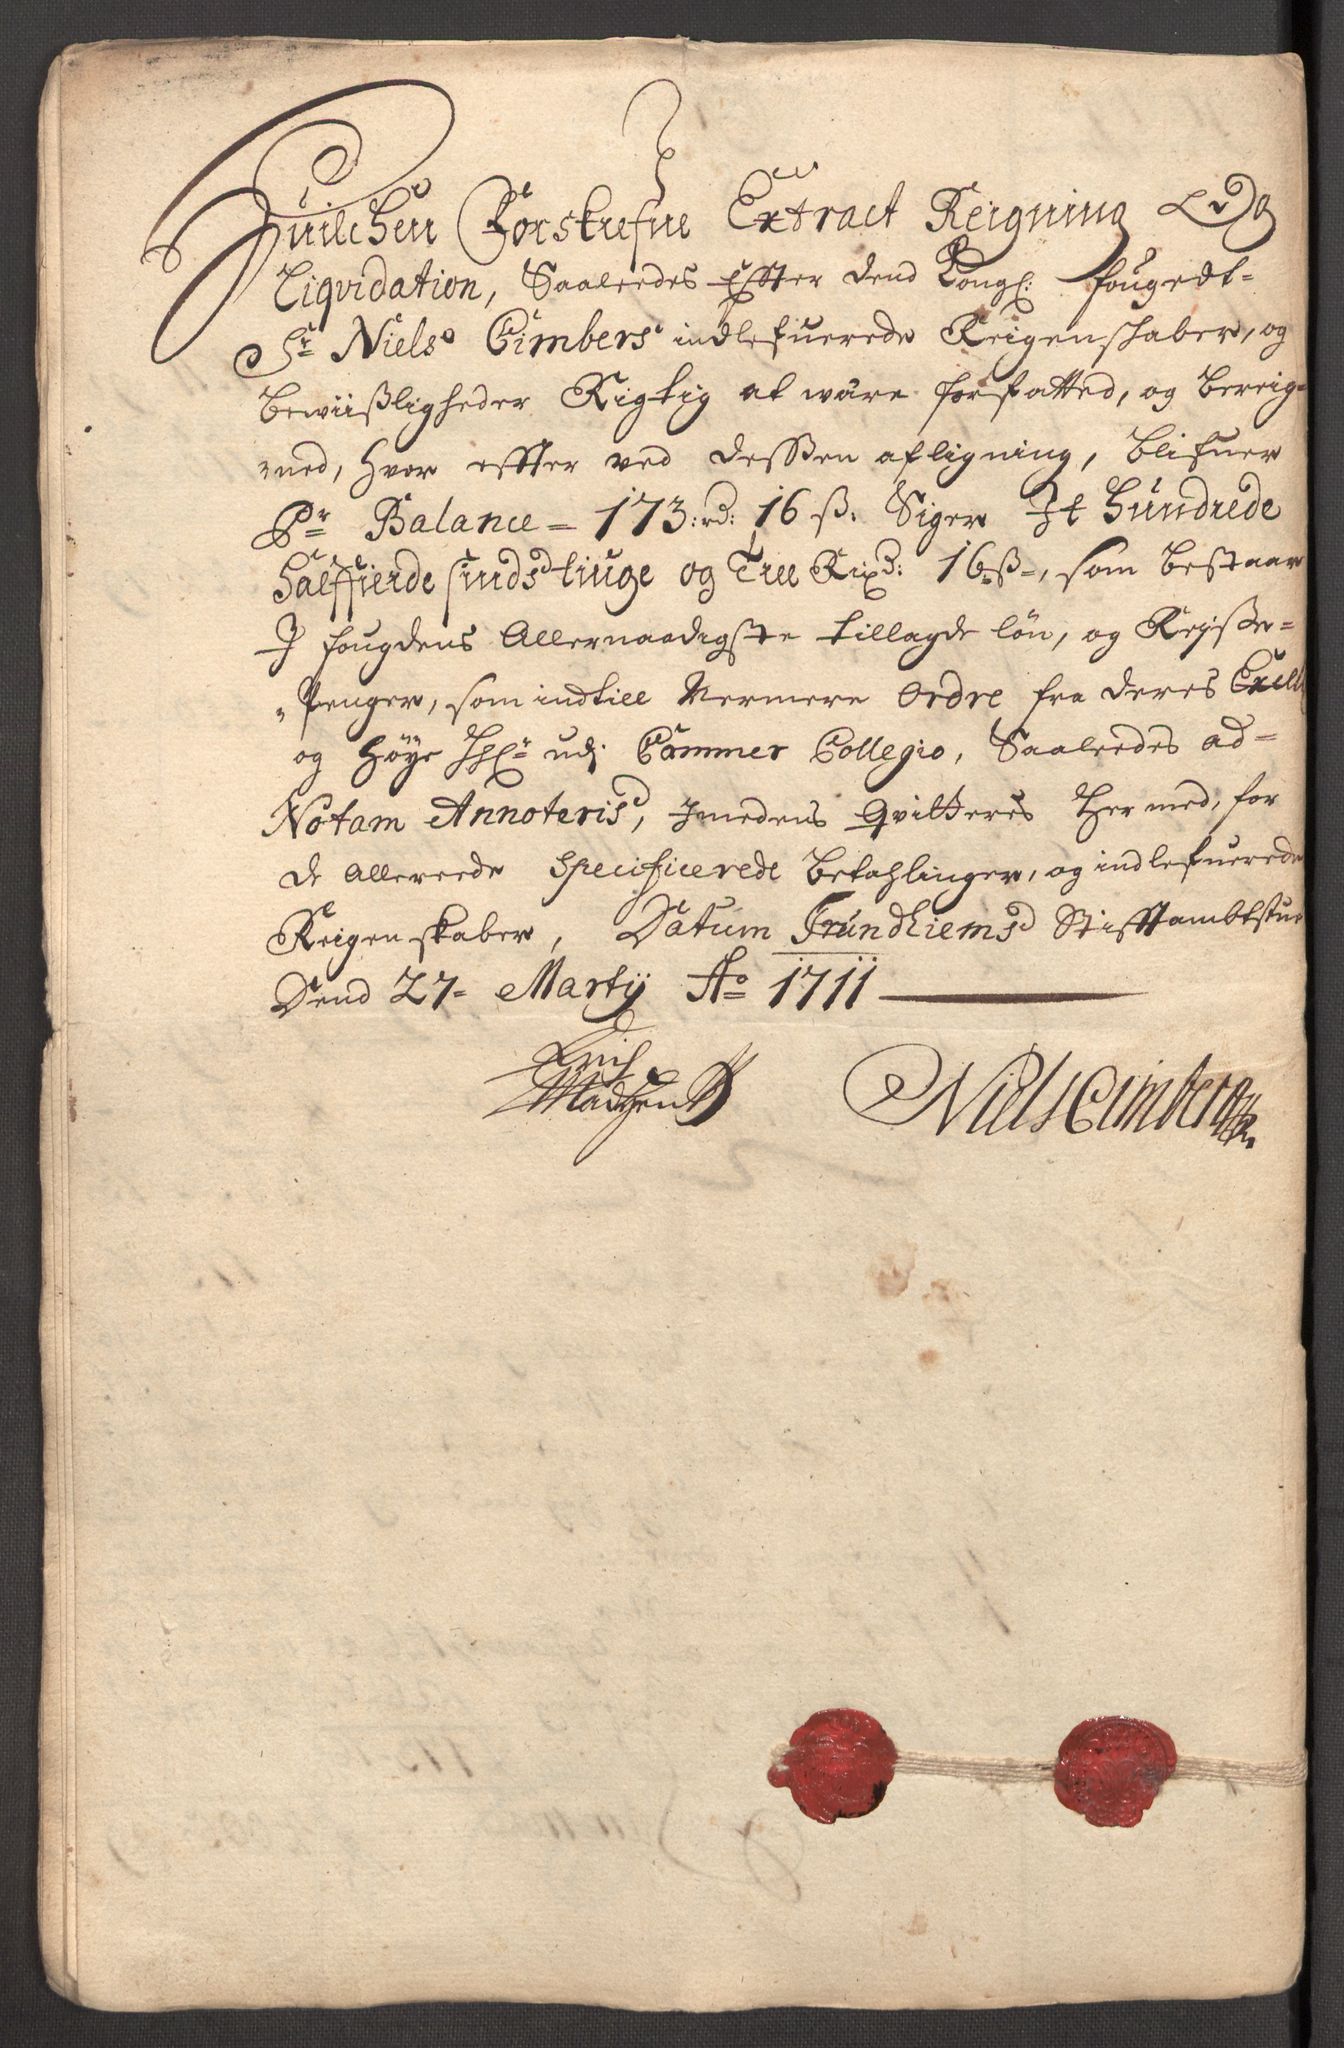 Huilchen Forskrefne Extract Reigning og
Liqvidation, Saaleedes Effter dend Kongl: fougedt-
Sr Niels Cimbers indlefuerede Reigenskaber, og
bewiißligheder Rigtig at wäre forfatted, og bereig-
ned, hvor effter ved dessen afligning, blifuer
Pr Balance = 173: rd: 16 ß. Siger It Hundrede
Halffierdesindstiuge og Tree Rixd: 16 ß =, som bestaar
I fougdens Allernaadigste tillagde løn, og Rejße-
Penger, som indtill Nermere Ordre fra deres Excell:
og Høye udj Cammer Collegio, Saaleedes ad-
Notam Annoteris, Imedens Qvitteres Hermed, for
de allereede Specificerede betahlinger, og indlefuerede
Reigenskaber, Datum Trundhiems Stifftambtstue
Dend 27= Martij Ao 1711
Erich
Madtzen
Niels Cimberg